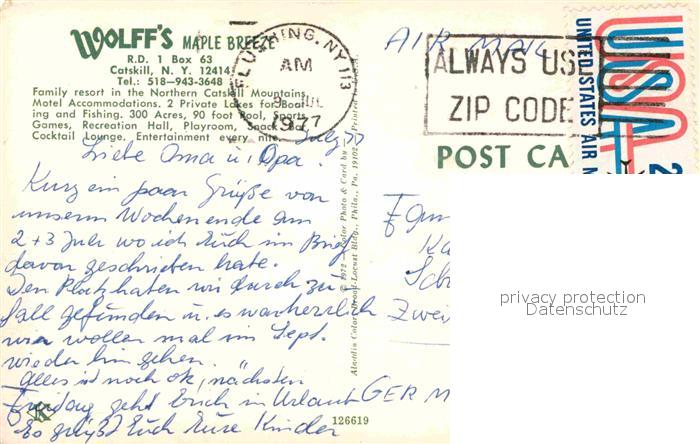 WOLFF'S MAPLE BREEZE
R.D. 1 Box 63
Catskill, N. Y. 12414
Tel.: 518-943-3648
Family resort in the Northern Catskill Mountains
Motel Accommodations. 2 Private Lakes for Boat-
ing and Fishing. 300 Acres, 90 foot Pool, Sports
Games, Recreation Hall, Playroom, Snack Bar
Cocktail Lounge. Entertainment every nite.
FLUSHING, NY 113
AM
9 JUL
1977
AIR MAIL
ALWAYS USE
ZIP CODE
USA
UNITED STATES AIR M
POST CA
July 77
Liebe Oma u. Opa.
Kurz ein paar Grüße von
unserm Wochenende am
2+3 July wo ich Euch im Brief
davon geschrieben habe.
Den Platz haben wir durch zu
fall gefunden u. es war herrlich
wir wollen mal im Sept.
wieder hin gehen.
Alles ist noch ok, nächsten
Freidag geht Erich in Urlaub
So grüßt Euch Eure Kinder
© 1972 Color Photo & Card by
Aladdin Color, Broad-Locust Bldg., Phila., Pa. 19102
Zwei
GERM
126619
K
privacy protection
Datenschutz